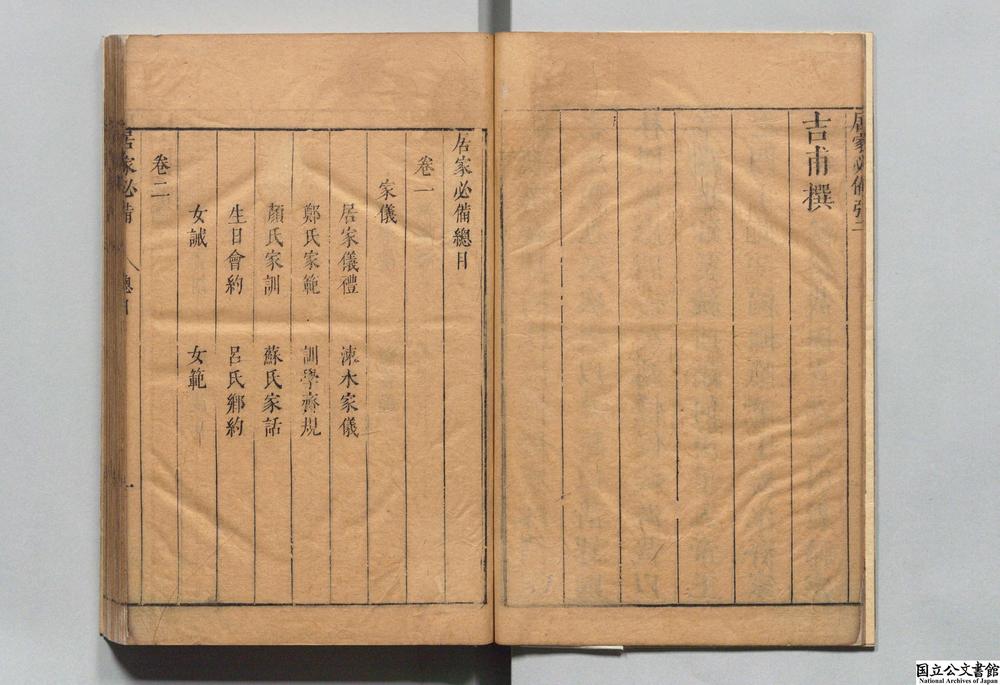 居家必備
吉甫撰
居家必備總目
卷一
家儀
居家儀禮 涑水家儀
鄭氏家範 訓學齋規
顏氏家訓 蘇氏家話
生日會約 呂氏鄉約
女誡 女範
卷二
居家必備 總目 一
国立公文書館
National Archives of Japan